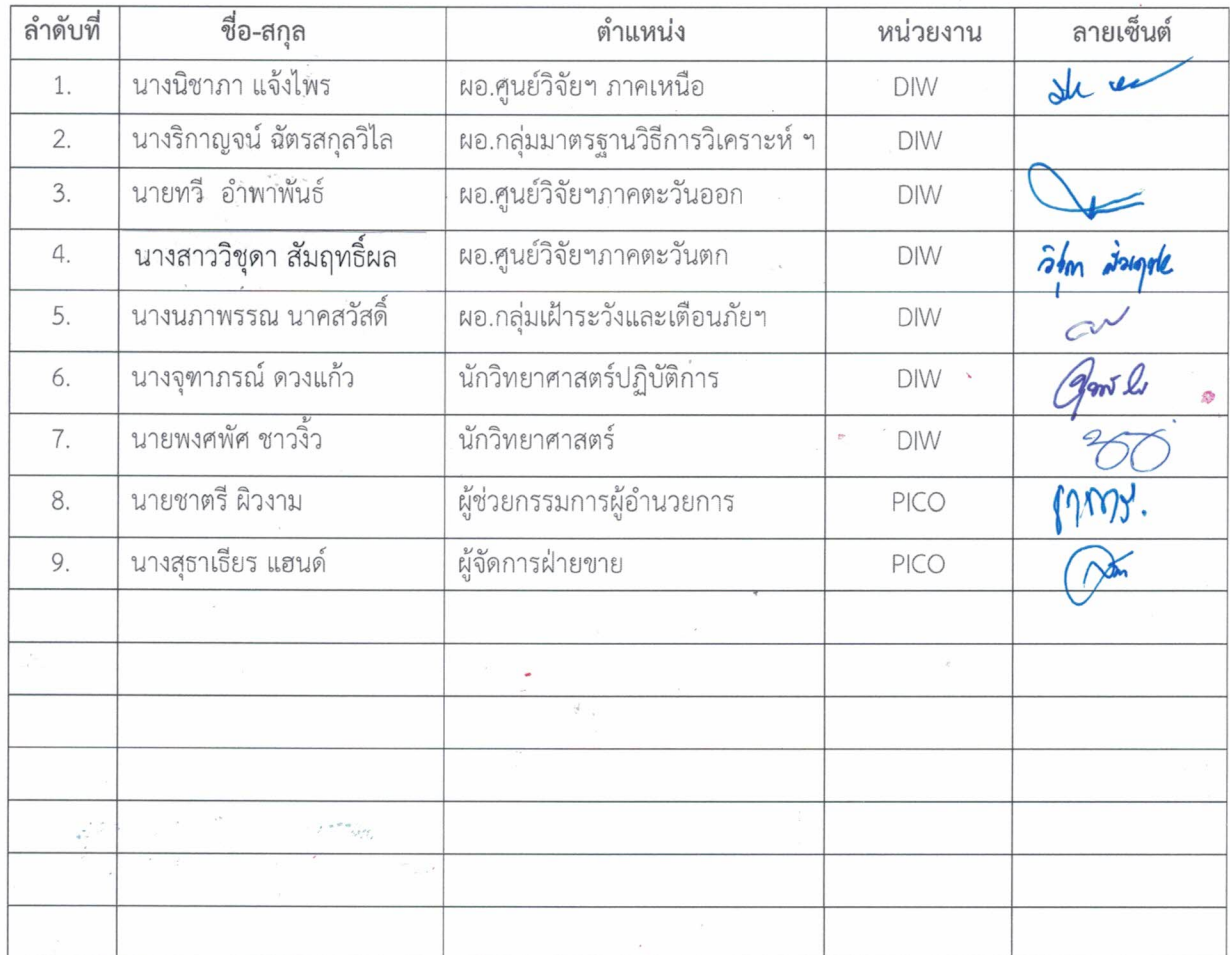 ลำดับที่ ชื่อ-สกุล ตำแหน่ง หน่วยงาน ลายเซ็นต์
1. นางนิชาภา แจ้งไพร ผอ.ศูนย์วิจัยฯ ภาคเหนือ DIW
2. นางริกาญจน์ ฉัตรสกุลวิไล ผอ.กลุ่มมาตรฐานวิธีการวิเคราะห์ ฯ DIW
3. นายทวี อำพาพันธ์ ผอ.ศูนย์วิจัยฯภาคตะวันออก DIW
4. นางสาววิชุดา สัมฤทธิ์ผล ผอ.ศูนย์วิจัยฯภาคตะวันตก DIW
5. นางนภาพรรณ นาคสวัสดิ์ ผอ.กลุ่มเฝ้าระวังและเตือนภัยฯ DIW
6. นางจุฑาภรณ์ ดวงแก้ว นักวิทยาศาสตร์ปฏิบัติการ DIW
7. นายพงศพัศ ชาวงิ้ว นักวิทยาศาสตร์ DIW
8. นายชาตรี ผิวงาม ผู้ช่วยกรรมการผู้อำนวยการ PICO
9. นางสุธาเธียร แฮนด์ ผู้จัดการฝ่ายขาย PICO